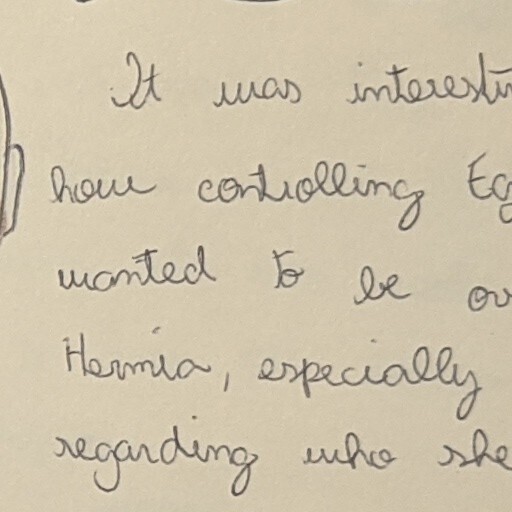 It was interestin
how controlling Eg
wanted to be ov
Hermia, especially
regarding who she